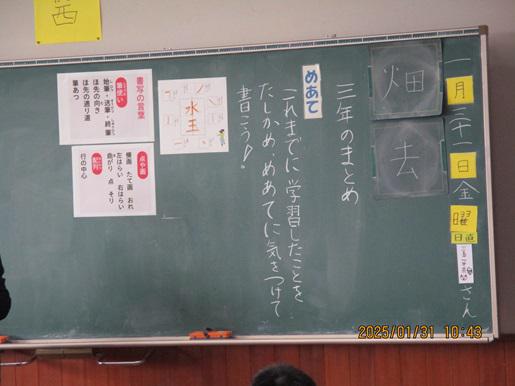 西
一月三十一日金曜
日直
さん
畑
去
三年のまとめ
めあて
これまでに学習したことを
たしかめ、めあてに気をつけて
書こう!
水
玉
書写の言葉
筆使い
始筆・送筆・終筆
ほ先の向き
ほ先の通り道
筆あつ
点や画
横画 たて画 おれ
左はらい 右はらい
曲がり 点 そり
配列
行の中心
2025/01/31 10:43